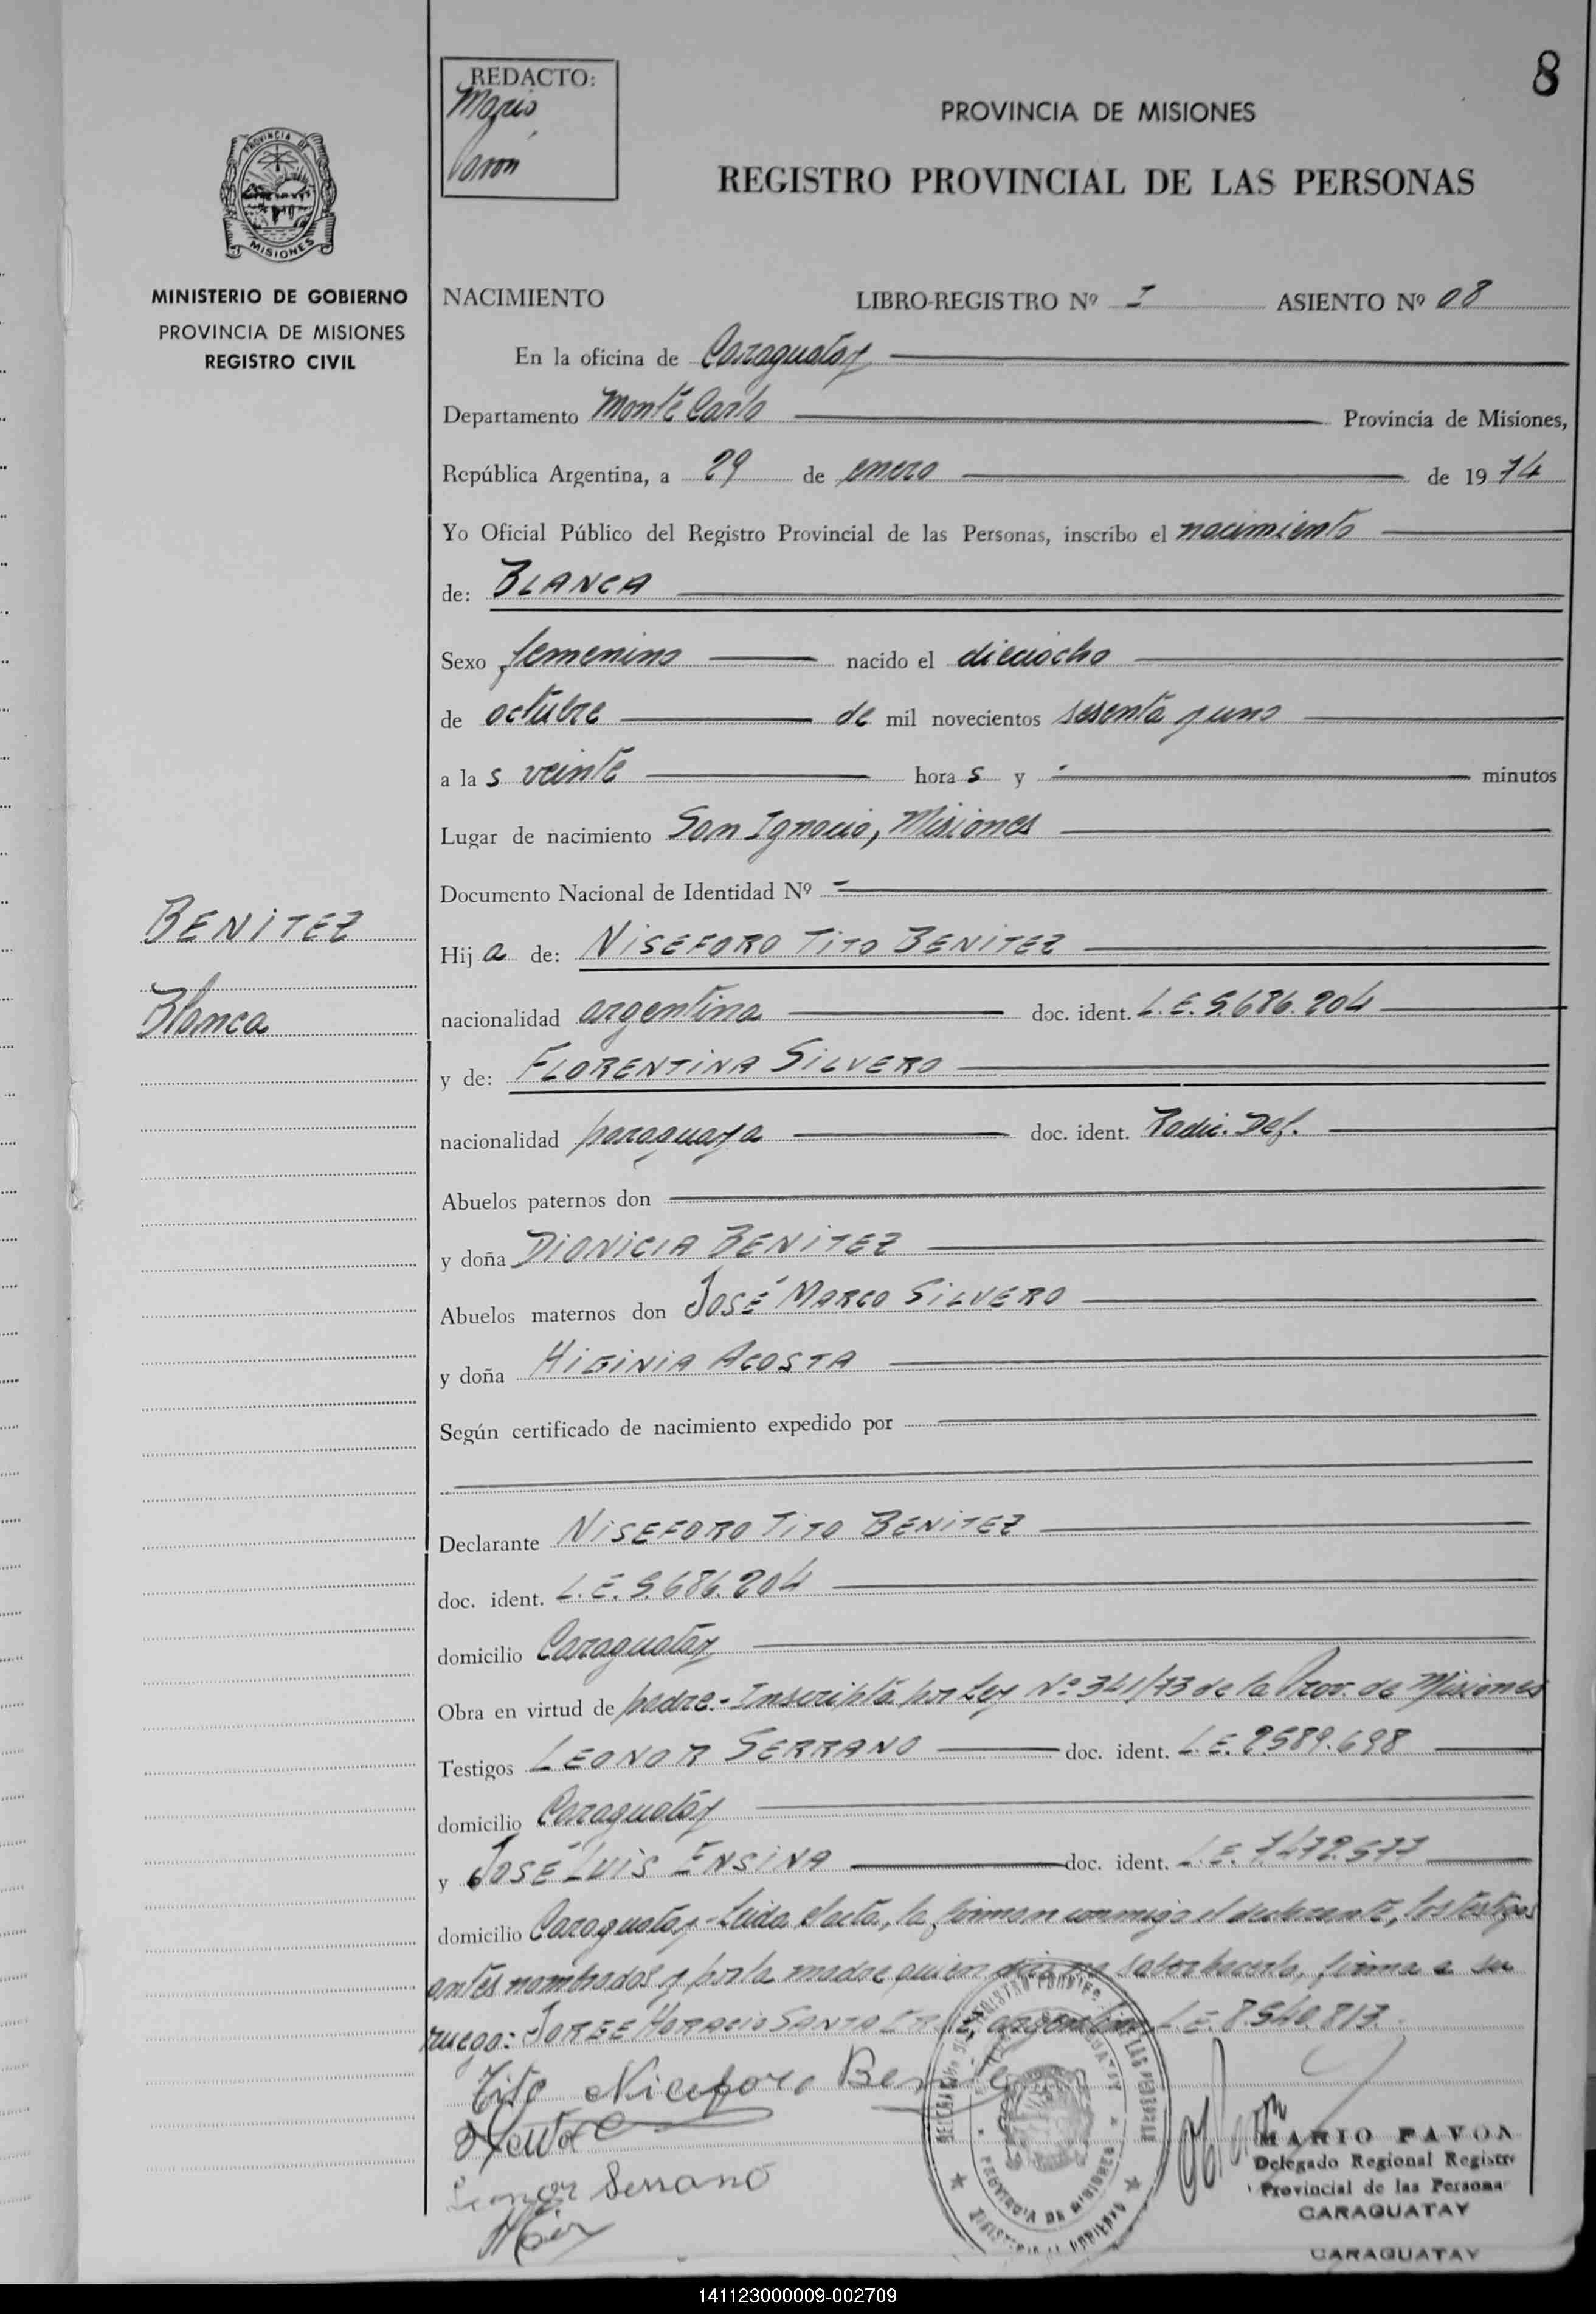 8
REDACTO:
Mario
Pavon
PROVINCIA DE MISIONES
REGISTRO PROVINCIAL DE LAS PERSONAS
PROVINCIA DE
MISIONES
MINISTERIO DE GOBIERNO
PROVINCIA DE MISIONES
REGISTRO CIVIL
NACIMIENTO LIBRO-REGISTRO Nº I ASIENTO Nº 08
En la oficina de Caraguatay
Departamento Monte Carlo Provincia de Misiones,
República Argentina, a 29 de enero de 1974
Yo Oficial Público del Registro Provincial de las Personas, inscribo el nacimiento
de: BLANCA
Sexo femenino nacido el dieciocho
de octubre de mil novecientos sesenta y uno
a las veinte horas y - minutos
Lugar de nacimiento San Ignacio, Misiones
Documento Nacional de Identidad Nº -
BENITEZ
Blanca
Hija de: NISEFORO TITO BENITEZ
nacionalidad argentina doc. ident. L.E. 5.686.204
y de: FLORENTINA SILVERO
nacionalidad paraguaya doc. ident. Radic. Def.
Abuelos paternos don
y doña DIONICIA BENITEZ
Abuelos maternos don JOSÉ MARCO SILVERO
y doña HIGINIA ACOSTA
Según certificado de nacimiento expedido por
Declarante NISEFORO TITO BENITEZ
doc. ident. L.E. 5.686.204
domicilio Caraguatay
Obra en virtud de padre.- Inscripta por Ley Nº 341/73 de la Prov. de Misiones
Testigos LEONOR SERRANO doc. ident. L.E. 2.589.698
domicilio Caraguatay
y JOSÉ LUIS ENSINA doc. ident. L.E. 7.472.577
domicilio Caraguatay - Leída el acta, la firman conmigo el declarante, los testigos
antes nombrados y por la madre quien dice no saber hacerlo, firma a su
ruego: JORGE HORACIO SANTA CRUZ, argentino, L.E. 8.540.813.
Tito Niceforo Benitez
Leonor Serrano
PROVINCIA DE MISIONES
MARIO PAVON
Delegado Regional Registro
Provincial de las Persona
CARAGUATAY
CARAGUATAY
141123000009-002709